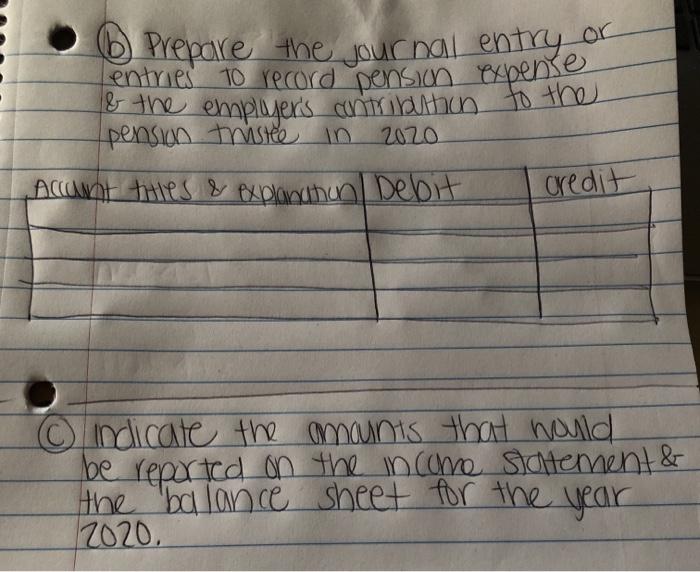 (b) Prepare the journal entry or
entries to record pension expense
& the employer's contribution to the
pension trustee in 2020
Account titles & explanation Debit credit
(c) indicate the amounts that would
be reported on the income statement &
the balance sheet for the year
2020.